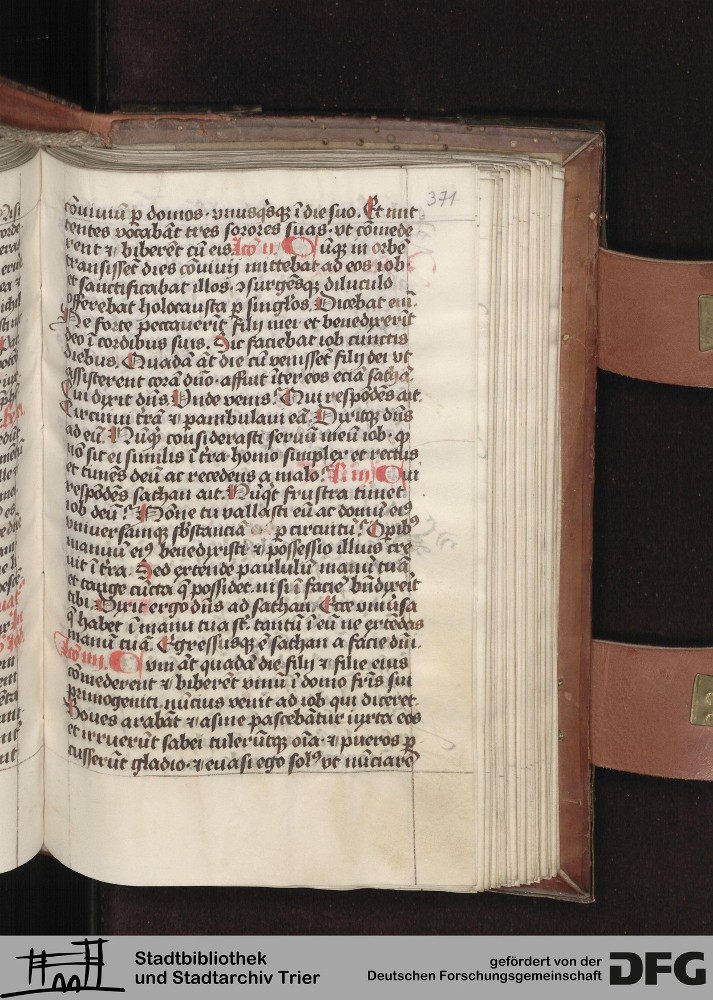 371
cōuiuiū p domos · vnusq̄sqꝫ ī die suo. Et mit
tentes vocabāt tres sorores suas · vt cōmede
rent ⁊ biberēt cū eis lcō ii. Cūqꝫ in orbē
transissēt dies cōuiuij mittebat ad eos iob
et sanctificabat illos · ↄsurgēsqꝫ diluculo
offerebat holocausta p singl̓os. Dicebat em̄
Ne forte peccauerīt filij mei et benedixerīt
deo ī cordibus suis. Sic faciebat iob cunctis
diebus. Quadā āt die cū venissēt filij dei vt
assisterent corā dn̄o · affuit īter eos eciā sathā
Cui dixit dn̄s Unde venis? Qui respōdēs ait.
Circuiui trā ⁊ pambulaui eā. Dixitqꝫ dn̄s
ad eū. Nūqͥd cōsiderasti seruū meū iob · ꝙ
nō sit ei similis ī tra homo simplex et rectus
et timēs deū ac recedens a malo? R iii Cui
respōdēs sathan ait. Nūqͥt frustra timet
iob deū? Nōne tu vallasti eū ac domū eiꝰ
vniuersamqꝫ sb̄stanciā p circuitū? Opibꝰ
manuū eiꝰ benedixisti ⁊ possessio illius cre
uit ī tra. Sed extende paululū manū tuā
et tange cūcta q̄ possidet nisi ī faciē bn̄dixerit
tibi. Dixit ergo dn̄s ad sathan. Ecce vniūsa
q̄ habet ī manu tua st̄. tantū ī eū ne extēdas
manū tuā. Egressusqꝫ ē sathan a facie dn̄i.
lcō iiii. Cum āt quadā die filij ⁊ filie eius
cōmederent ⁊ biberēt vinū ī domo fr̄is sui
primogeniti. nūcius venit ad iob qui diceret.
Boues arabāt ⁊ asine pascebātur iuxta eos
et irruerūt sabei tulerūtqꝫ oīa ⁊ pueros p
cusserūt gladio · ⁊ euasi ego solꝰ vt nūciarē
Stadtbibliothek
und Stadtarchiv Trier
gefördert von der
Deutschen Forschungsgemeinschaft
DFG